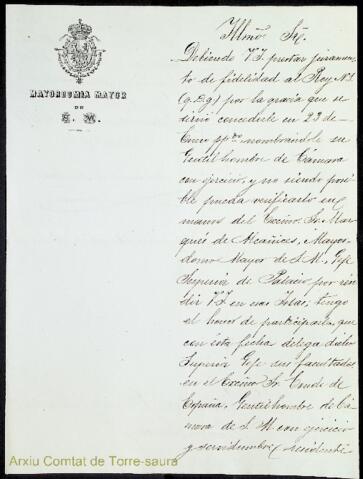 MAYORDOMIA MAYOR
DE
S. M.
Illmo Sr.
Debiendo V.I. prestar juramen-
to de fidelidad al Rey N.S.
(q.D.g) por la gracia que se
sirvió concederle en 23 de
Enero pp.do nombrándole su
Gentilhombre de Cámara
con ejercicio, y no siendo posi-
ble pueda verificarlo en
manos del Excmo. Sr. Mar-
qués de Alcañices, Mayor-
domo Mayor de S.M., Gefe
Superior de Palacio por resi-
dir V.I. en esas Islas; tengo
el honor de participarle, que
con esta fecha delega dicho
Superior Gefe sus facultades
en el Excmo Sr. Conde de
España, Gentilhombre de Cá-
mara de S. M con ejercicio
y servidumbre, residente
Arxiu Comtat de Torre-saura